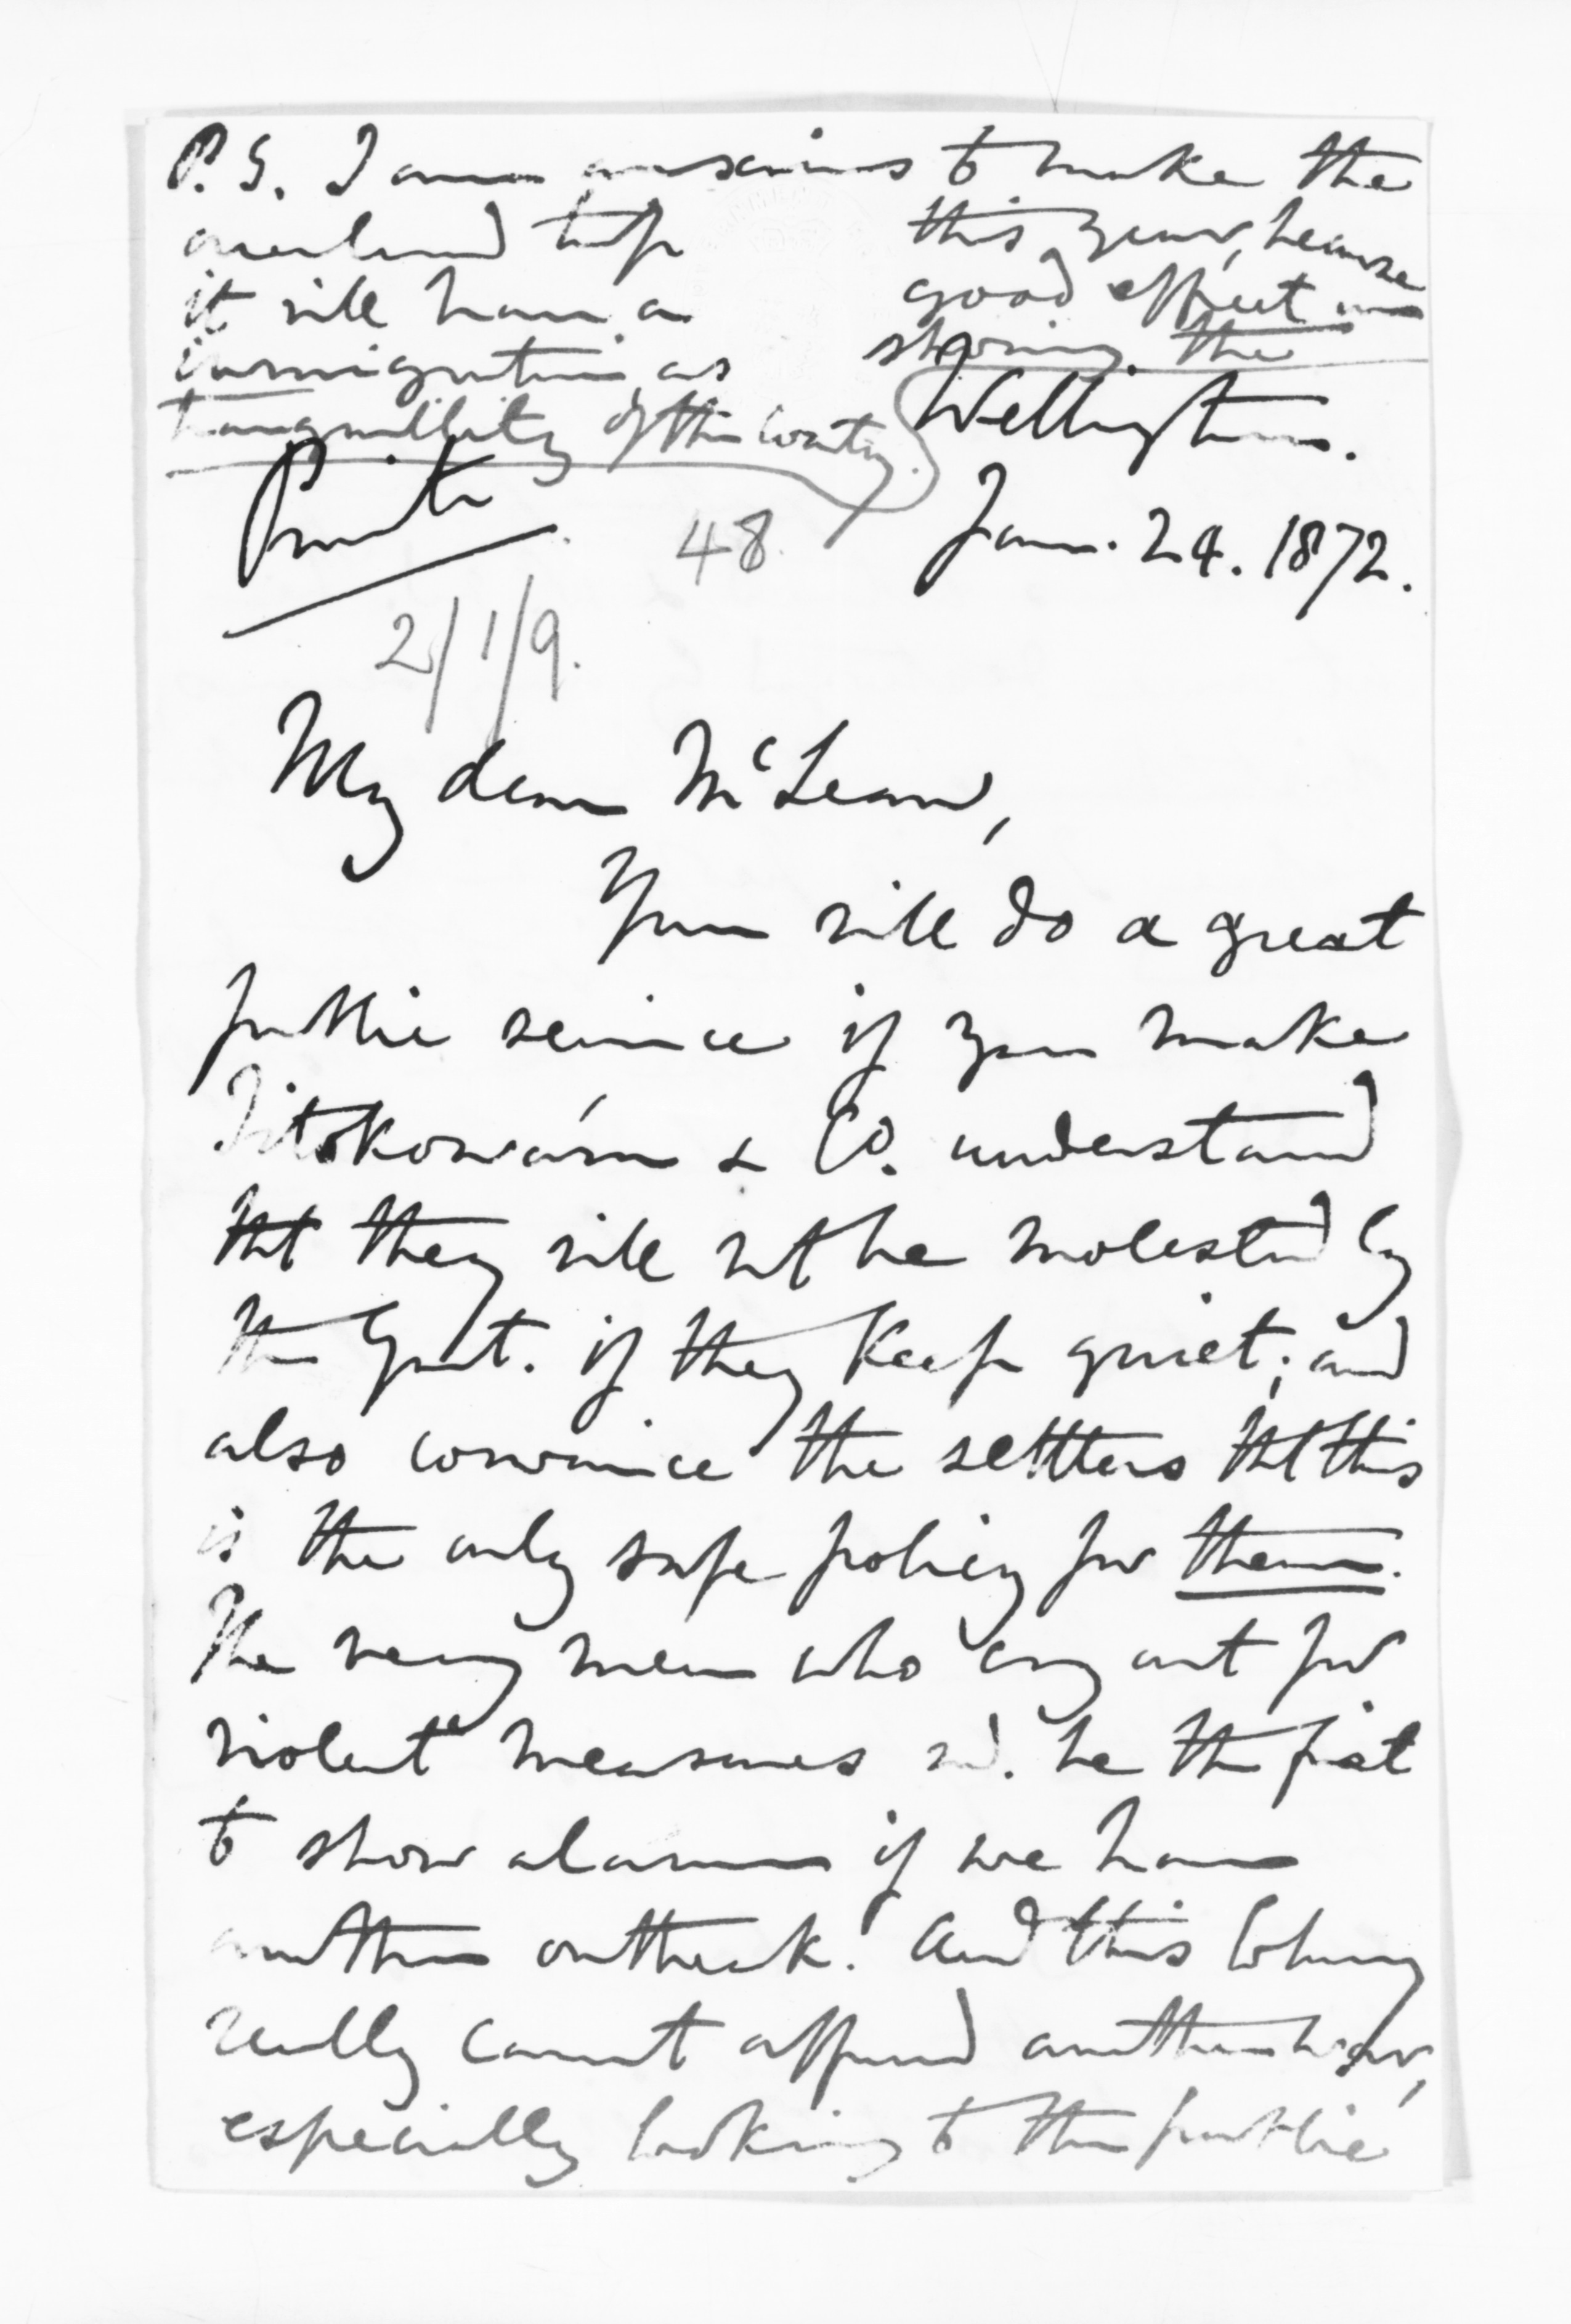 P.S. I am anxious to make the
overland trip this year, because
it will have a good effect on
immigration, as showing the
tranquillity of the country.
Wellington.
Private
48
Jan. 24. 1872.
2/1/9.
My dear McLean,
You will do a great
public service if you make
Titokowáru & Co. understand
tht they will nt be molested by
the Govt. if they keep quiet; and
also convince the settlers tht this
is the only safe policy for them.
The very men who cry out for
violent measures wd. be the first
to show alarm if we have
another outbreak! And this Colony
really cannot afford another war,
especially looking to the public